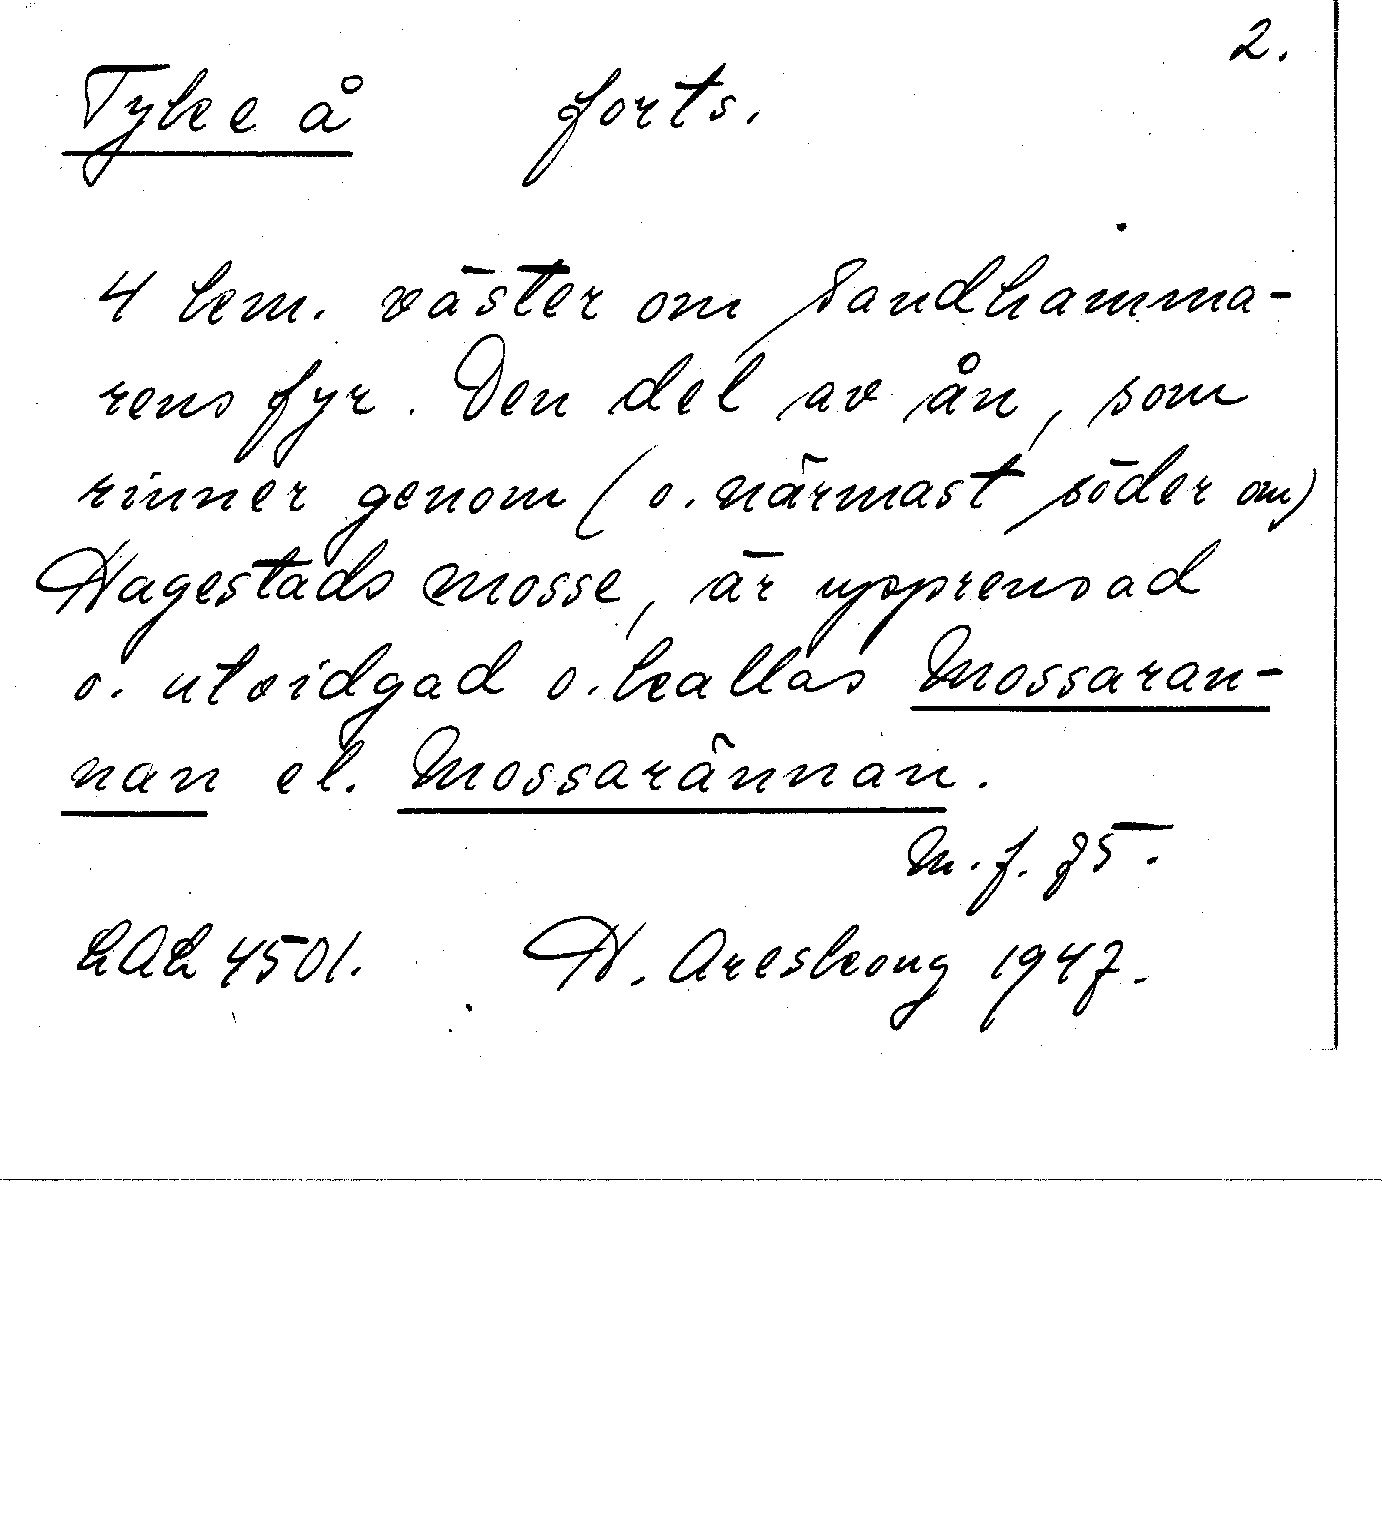 2.
Tyke å forts.
4 km. väster om Sandhamma-
rens fyr. Den del av ån, som
rinner genom (o. närmast söder om)
Hagestads mosse, är upprensad
o. utvidgad o. kallas Mossaran-
nan el. Mossarännan.
M. f. 75.
LAL 4501. H. Areskoug 1947.